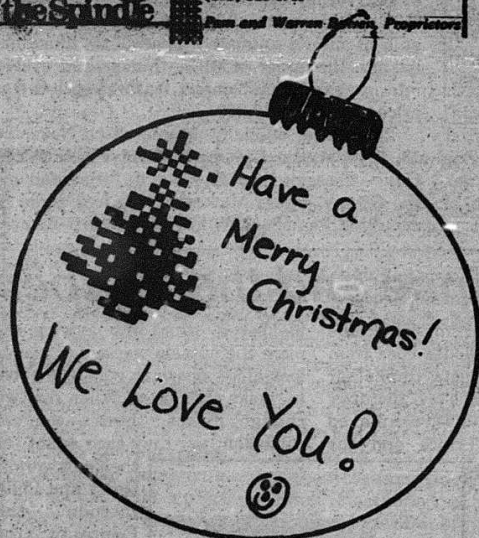 the Spindle
Pam and Warren Proprietors
Have a
Merry
Christmas!
We Love You!